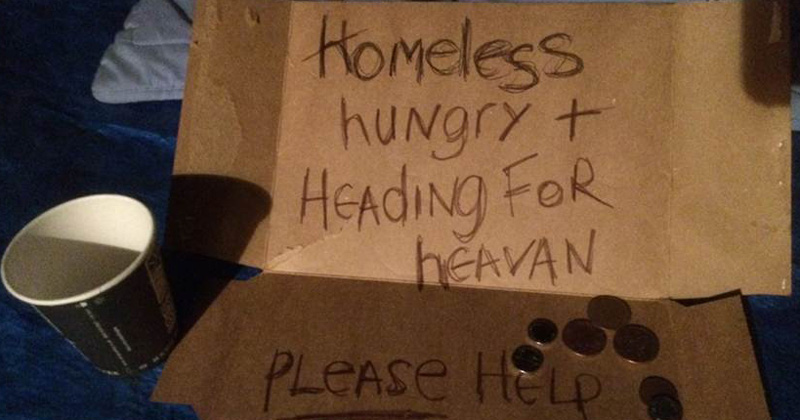 Homeless
hungry +
HEAdiNg FoR
hEAVAN
PLEASE HELP